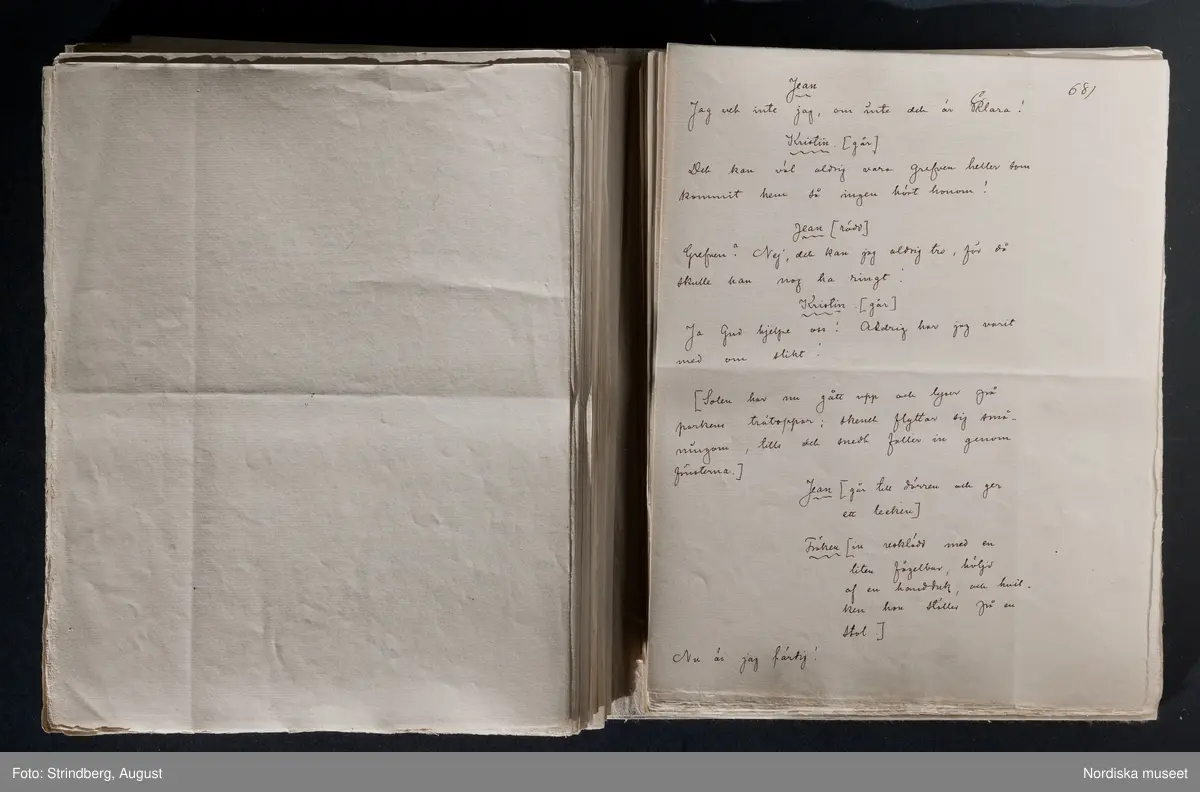 68)
Jean
Jag vet inte jag, om inte det är Klara!
Kristin. [går]
Det kan väl aldrig vara Grefven heller som
kommit hem så ingen hört honom!
Jean [rädd]
Grefven? Nej, det kan jag aldrig tro, för då
skulle han nog ha ringt!
Kristin. [går]
Ja Gud hjelpe oss! Aldrig har jag varit
med om slikt!
[Solen har nu gått upp och lyser på
parkens trätoppar; skenet flyttar sig små-
ningom, tills det snedt faller in genom
fönsterna.]
Jean [går till dörren och ger
ett tecken]
Fröken [in resklädd med en
liten fågelbur, höljd
af en handduk, och hvil-
ken hon ställer på en
stol.]
Nu är jag färdig!
Foto: Strindberg, August
Nordiska museet